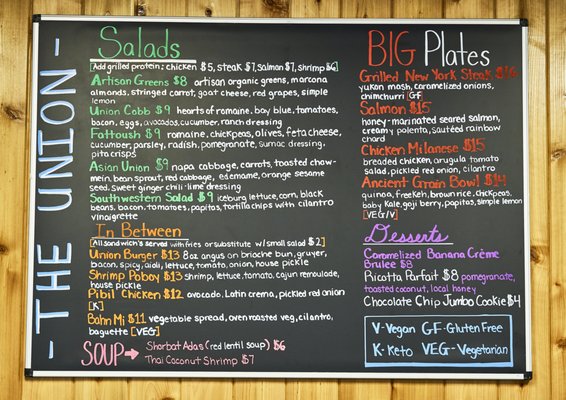 - THE UNION -
Salads
[Add grilled protein; chicken $5, steak $7, salmon $7, shrimp $6]
Artisan Greens $8 artisan organic greens, marcona
almonds, stringed carrot, goat cheese, red grapes, simple
lemon
Union Cobb $9 hearts of romaine, bay blue, tomatoes,
bacon, eggs, avocados, cucumber, ranch dressing
Fattoush $9 romaine, chickpeas, olives, feta cheese,
cucumber, parsley, radish, pomegranate, sumac dressing,
pita crisps
Asian Union $9 napa cabbage, carrots, toasted chow-
mein, bean sprout, red cabbage, edemame, orange sesame
seed, sweet ginger chili-lime dressing
Southwestern Salad $9 iceburg lettuce, corn, black
beans, bacon, tomatoes, papitas, tortilla chips with cilantro
vinaigrette
In Between
[All sandwich's served with fries or substitute w/ small salad $2]
Union Burger $13 8oz angus on brioche bun, gruyer,
bacon, spicy, aioli, lettuce, tomato, onion, house pickle
Shrimp Poboy $13 shrimp, lettuce, tomato, cajun remoulade,
house pickle
Pibil Chicken $12 avocado, Latin crema, pickled red onion
[K]
Bahn Mi $11 vegetable spread, oven roasted veg, cilantro,
baguette [VEG]
SOUP → Shorbat Adas (red lentil soup) $6
Thai Coconut Shrimp $7
BIG Plates
Grilled New York Steak $16
yukon mash, caramelized onions,
chimchurri [GF]
Salmon $15
honey-marinated seared salmon,
creamy polenta, sautéed rainbow
chard
Chicken Milanese $15
breaded chicken, arugula tomato
salad, pickled red onion, cilantro
Ancient Grain Bowl $14
quinoa, freekeh, brown rice, chickpeas,
baby kale, goji berry, papitos, simple lemon
[VEG/V]
Desserts
Caramelized Banana Crème
Brulee $8
Ricotta Parfait $8 pomegranate,
toasted coconut, local honey
Chocolate Chip Jumbo Cookie $4
V-Vegan GF-Gluten Free
K-Keto VEG-Vegetarian